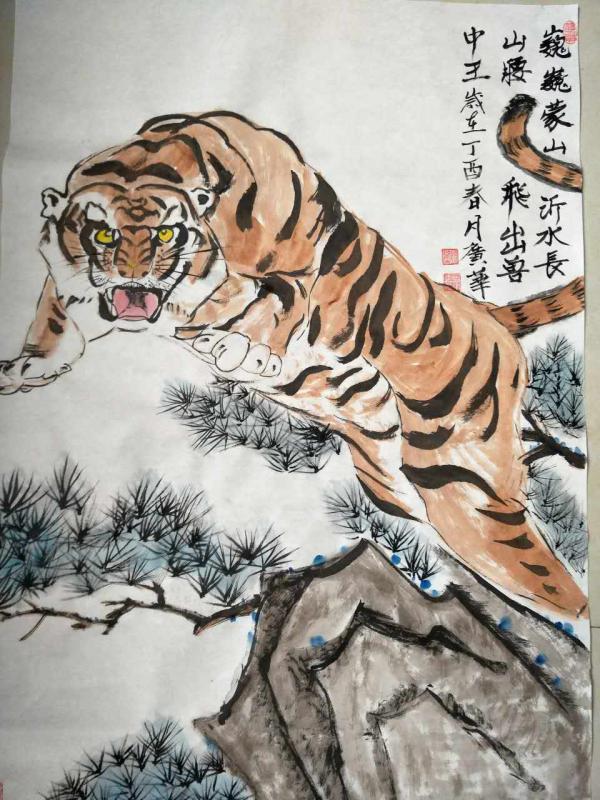 巍巍蒙山 沂水長
山腰 飛出兽
中王 岁在丁酉春月广華